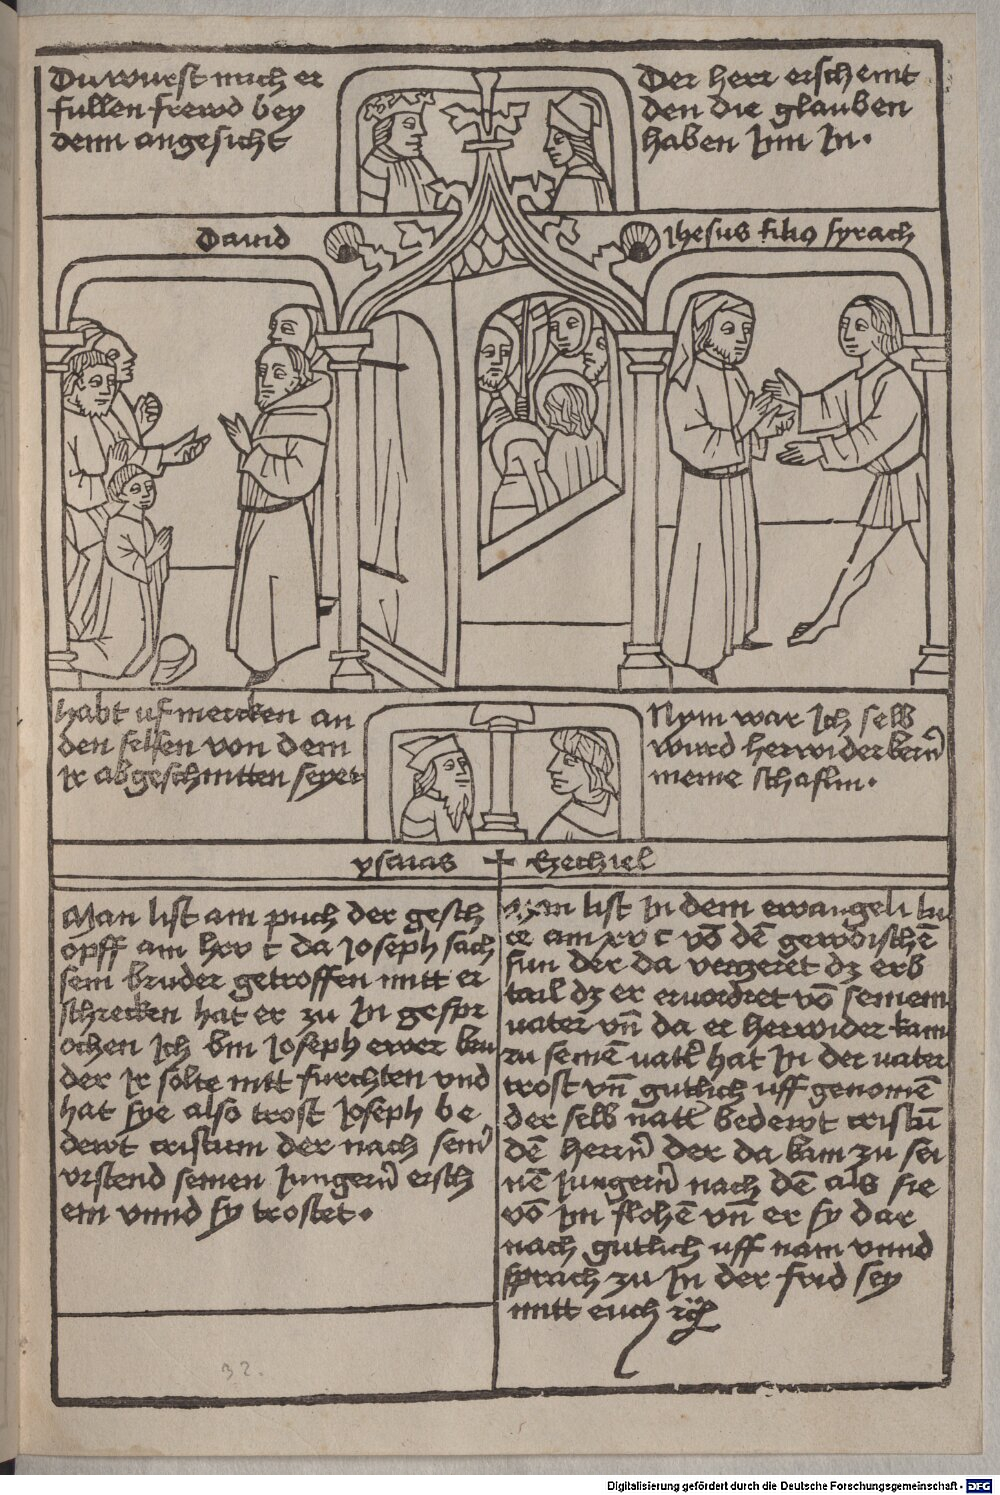 Du wurst mich er
fullen frewd bey
denn angesicht
Der herr erscheint
den die glauben
haben Jnn Jn.
Dauid
Jhesus filiq syrach
habt uf mercken an
den felsen von dem
Jr abgeschnitten seyet
Nym war Jch selb
wurd herwiderbern̄
meine schaflin.
ysaias Ezechiel
Man list am puch der gesch
opff am xlv c da Joseph sach
sein bruder getroffen mitt er
schrecken hat er zu Jn gespr
ochen Jch bin Joseph ewer bru
der Jr solte nitt furchten vnd
hat sye also trost Joseph be
dewt cristum der nach sein̄
vrstend seinen Jungern̄ ersch
ein vnnd sy trostet.
Man list Jn dem ewangeli lu
ce am xv c vō dē gewdischē
sun der da vergeret dz erb
tail dz er ervordret vō seinem
vater vn̄ da er herwider kam
zu seinē vatt̄ hat Jn der vater
trost vn̄ gutlich uff genomē
der selb vatt̄ bedewt cristū
dē herrn̄ der da kam zu sei
nē Jungern̄ nach dē als sie
vō Jm flohē vn̄ er sy dar
nach gutlich uff nam vnnd
sprach zu Jn der frid sey
mitt euch
32.
Digitalisierung gefördert durch die Deutsche Forschungsgemeinschaft - DFG